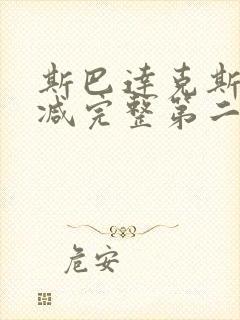 斯巴达克斯
减完整第二
危安